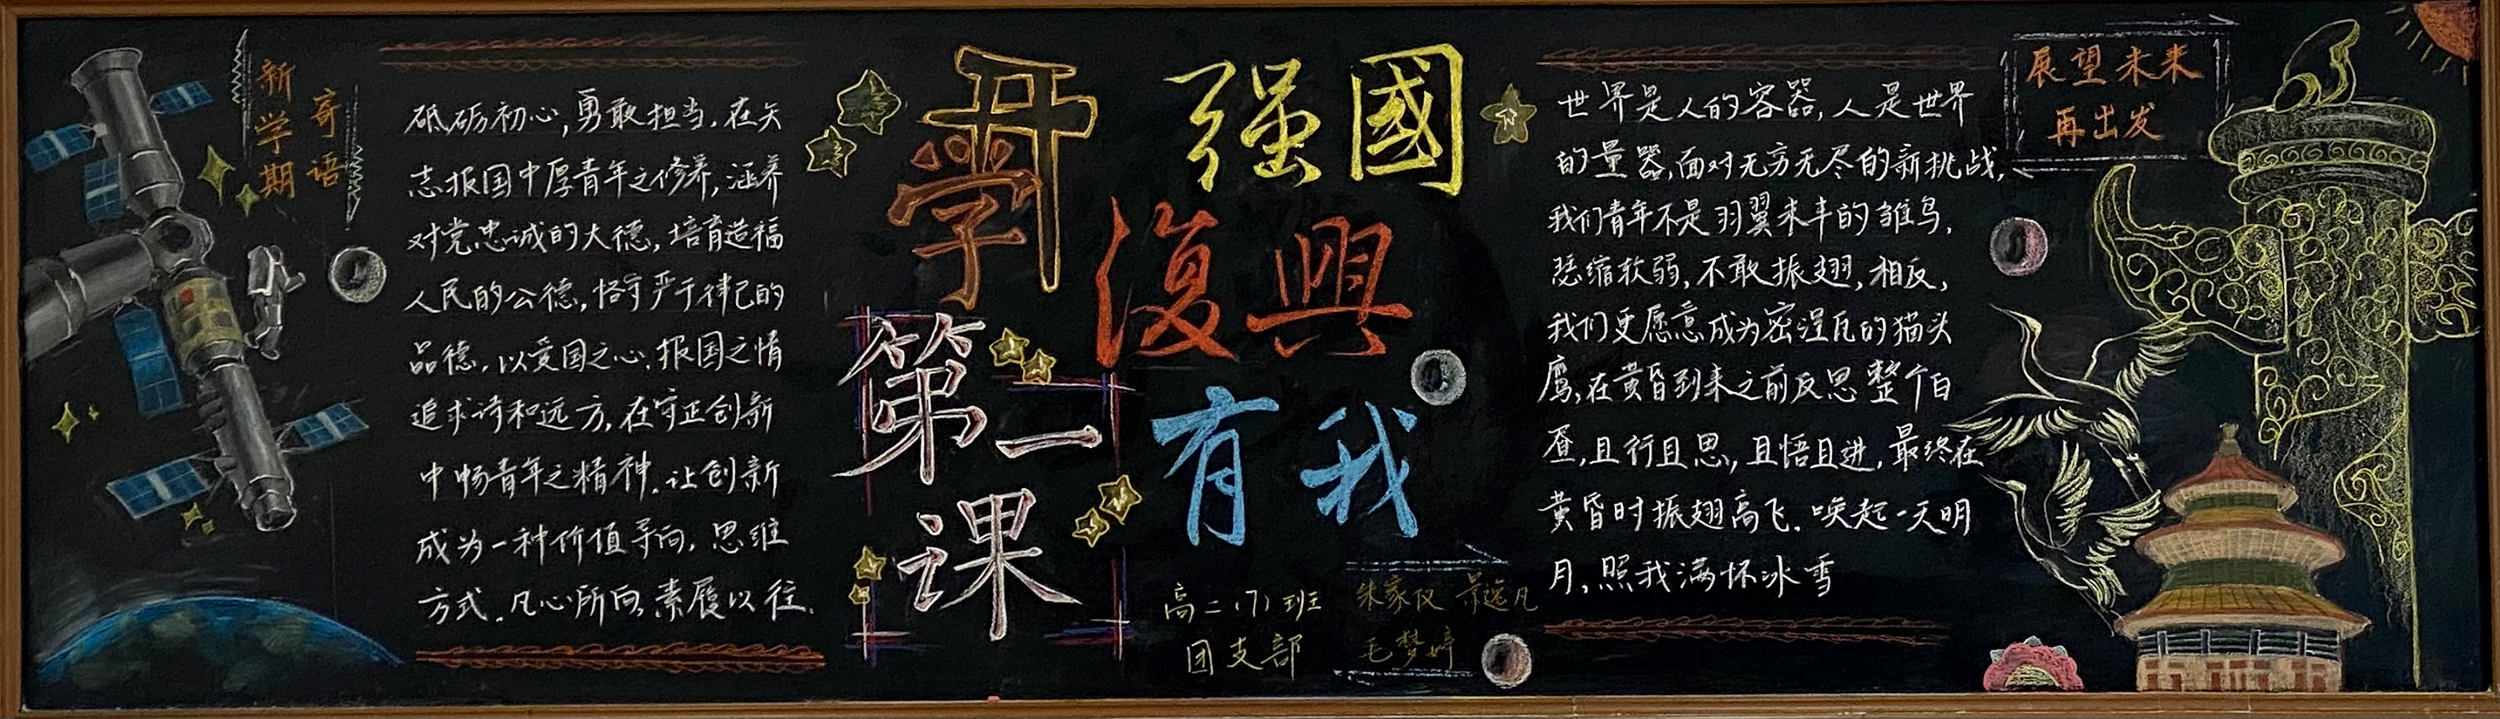 新学期
寄语
砥砺初心，勇敢担当，在矢
志报国中厚青年之修养，涵养
对党忠诚的大德，培育造福
人民的公德，恪守严于律己的
品德，以爱国之心，报国之情
追求诗和远方，在守正创新
中畅青年之精神。让创新
成为一种价值导向，思维
方式。凡心所向，素履以往。
开
學
第一
课
强國
復興
有我
高二(7)班
团支部
朱家仪 景逸凡
毛梦婷
世界是人的容器，人是世界
的量器，面对无穷无尽的新挑战，
我们青年不是羽翼未丰的雏鸟，
瑟缩软弱，不敢振翅，相反，
我们更愿意成为密涅瓦的猫头
鹰，在黄昏到来之前反思整个白
昼，且行且思，且悟且进，最终在
黄昏时振翅高飞。唤起一天明
月，照我满怀冰雪
展望未来
再出发